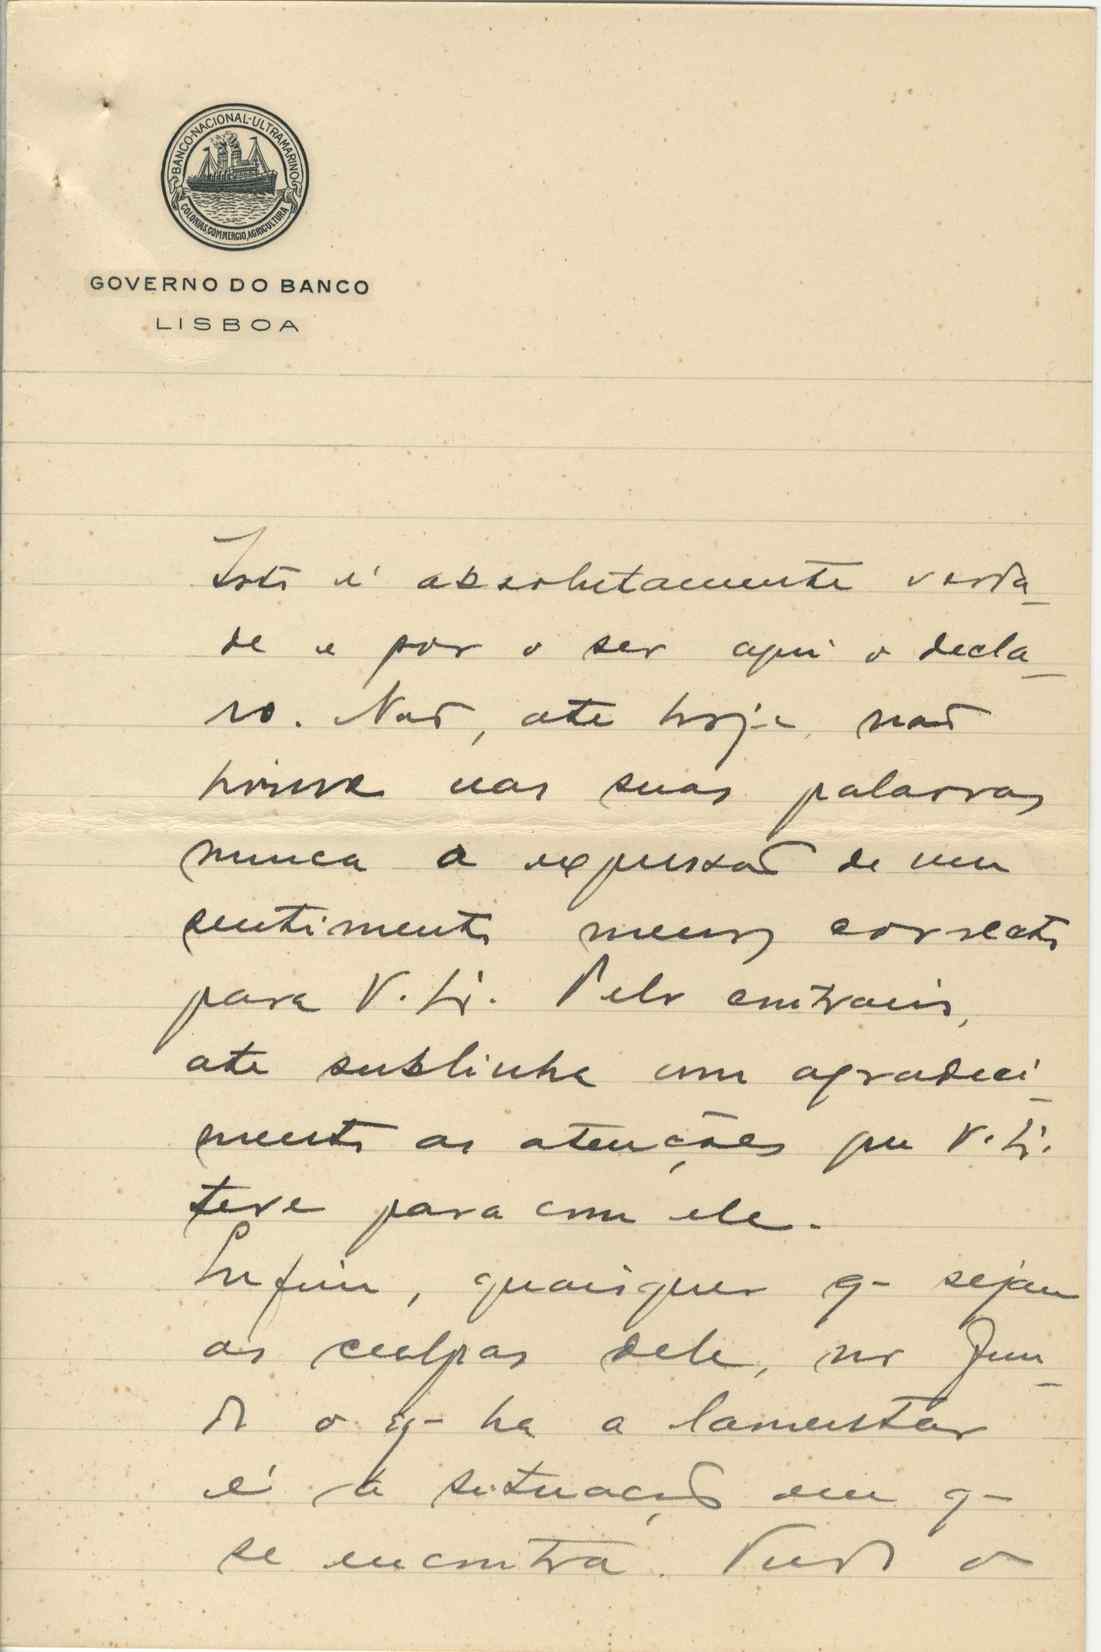 BANCO·NACIONAL·ULTRAMARINO
COLONIAS, COMMERCIO, AGRICULTURA
GOVERNO DO BANCO
LISBOA
Isto é absolutamente verda-
de e por o ser aqui o decla-
ro. Não, ate hoje, não
houve nas suas palavras
nunca a expressão de um
sentimento menos correcto
para V. Ex. Pelo contrario,
ate sublinha com agradeci-
mento as atenções que V. Ex.
teve para com ele.
Enfim, quaisquer q- sejam
as culpas dele, no fun-
do o q- ha a lamentar
é a situação em q-
se encontra. Perdi o